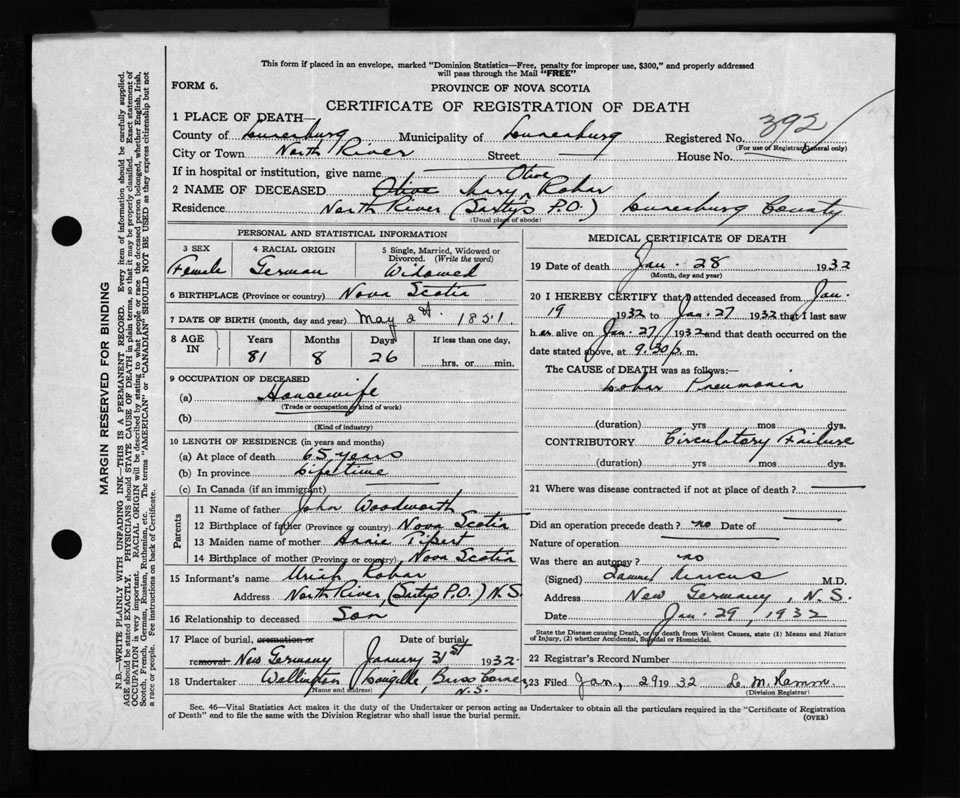 This form if placed in an envelope, marked "Dominion Statistics—Free, penalty for improper use, $300," and properly addressed
will pass through the Mail "FREE"
FORM 6.
PROVINCE OF NOVA SCOTIA
CERTIFICATE OF REGISTRATION OF DEATH
1 PLACE OF DEATH—
County of Lunenburg Municipality of Lunenburg Registered No. 392
(For use of Registrar General only)
City or Town North River Street House No.
If in hospital or institution, give name
Olive
2 NAME OF DECEASED Olive Mary Rohar
Residence North River (Sixty's P.O.) Lunenburg County
(Usual place of abode)
PERSONAL AND STATISTICAL INFORMATION
3 SEX 4 RACIAL ORIGIN 5 Single, Married, Widowed or Divorced. (Write the word)
Female German Widowed
6 BIRTHPLACE (Province or country) Nova Scotia
7 DATE OF BIRTH (month, day and year) May 2nd. 1851.
8 AGE IN Years Months Days If less than one day,
81 8 26 hrs. or min.
9 OCCUPATION OF DECEASED
(a) Housewife
(Trade or occupation or kind of work)
(b)
(Kind of industry)
10 LENGTH OF RESIDENCE (in years and months)
(a) At place of death 65 years
(b) In province Lifetime
(c) In Canada (if an immigrant)
Parents
11 Name of father John Woodworth
12 Birthplace of father (Province or country) Nova Scotia
13 Maiden name of mother Annie
14 Birthplace of mother (Province or country) Nova Scotia
15 Informant's name Uriah Rohar
Address North River, (Sixty's P.O.) N.S.
16 Relationship to deceased Son
17 Place of burial, cremation or Date of burial
removal New Germany January 31st 1932
18 Undertaker Wellington
(Name and address) N.S.
MEDICAL CERTIFICATE OF DEATH
19 Date of death Jan. 28 1932
(Month, day and year)
20 I HEREBY CERTIFY that I attended deceased from Jan.
19 1932 to Jan. 27 1932 that I last saw
h er alive on Jan. 27 1932 and that death occurred on the
date stated above, at 9.30 p. m.
The CAUSE of DEATH was as follows:—
Lobar Pneumonia
(duration) yrs mos dys.
CONTRIBUTORY Circulatory Failure
(duration) yrs mos dys.
21 Where was disease contracted if not at place of death?
Did an operation precede death? no Date of
Nature of operation
Was there an autopsy? no
(Signed) Samuel Marcus M.D.
Address New Germany, N.S.
Date Jan. 29, 1932
State the Disease causing Death, or in death from Violent Causes, state (1) Means and Nature
of Injury, (2) whether Accidental, Suicidal or Homicidal.
22 Registrar's Record Number
23 Filed Jan, 29 1932
(Division Registrar)
Sec. 46—Vital Statistics Act makes it the duty of the Undertaker or person acting as Undertaker to obtain all the particulars required in the "Certificate of Registration
of Death" and to file the same with the Division Registrar who shall issue the burial permit. (OVER)
MARGIN RESERVED FOR BINDING
N.B.—WRITE PLAINLY WITH UNFADING INK—THIS IS A PERMANENT RECORD. Every item of information should be carefully supplied.
AGE should be stated EXACTLY. PHYSICIANS should STATE CAUSE OF DEATH in plain terms, so that it may be properly classified. Exact statement of
OCCUPATION is very important. RACIAL ORIGIN will be described by stating to what people or race the deceased person belonged, whether English, Irish,
Scotch, French, German, Russian, Ruthenian, etc. The terms "AMERICAN" or "CANADIAN" SHOULD NOT BE USED as they express citizenship but not
a race or people. Fee instructions on back of Certificate.